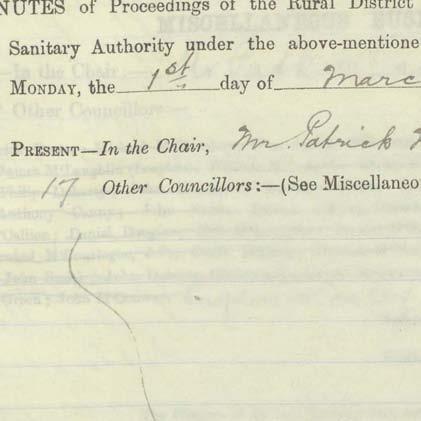 NUTES of Proceedings of the Rural District
Sanitary Authority under the above-mentione
MONDAY, the 1st day of Marc
PRESENT—In the Chair, Mr. Patrick
17 Other Councillors:—(See Miscellaneo